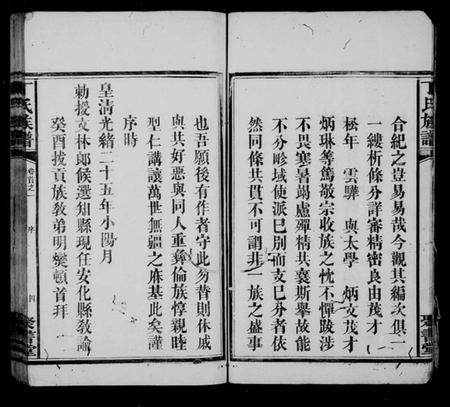 合紀之豈易易哉今觀其編次俱一
一縷析條分詳審精密良由茂才
松年 雲驊 與太學 炳文茂才
炳琳等篤敬宗收族之忱不憚跋涉
不畏寒暑竭慮殫精共襄斯舉故能
不分畛域使派已別而支已分者依
然同條共貫不可謂非一族之盛事
也吾願後有作者守此勿替則休戚
與共好惡與同人重彝倫族惇親睦
型仁講讓萬世無疆之庥基此矣謹
序時
皇清光緒二十五年小陽月
勅授文林郎候選知縣現任安化縣教諭
癸酉拔貢族教弟明㷼頓首拜
氏族譜
卷首之一
序
四
聚書堂
氏族譜
聚書堂